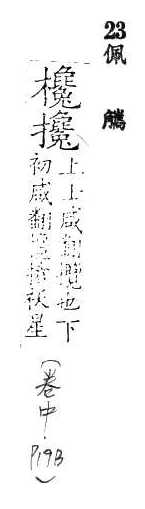 23 佩觿
欃攙
上士咸翻也下
初咸翻攙搶祅星
(卷中. P19B)